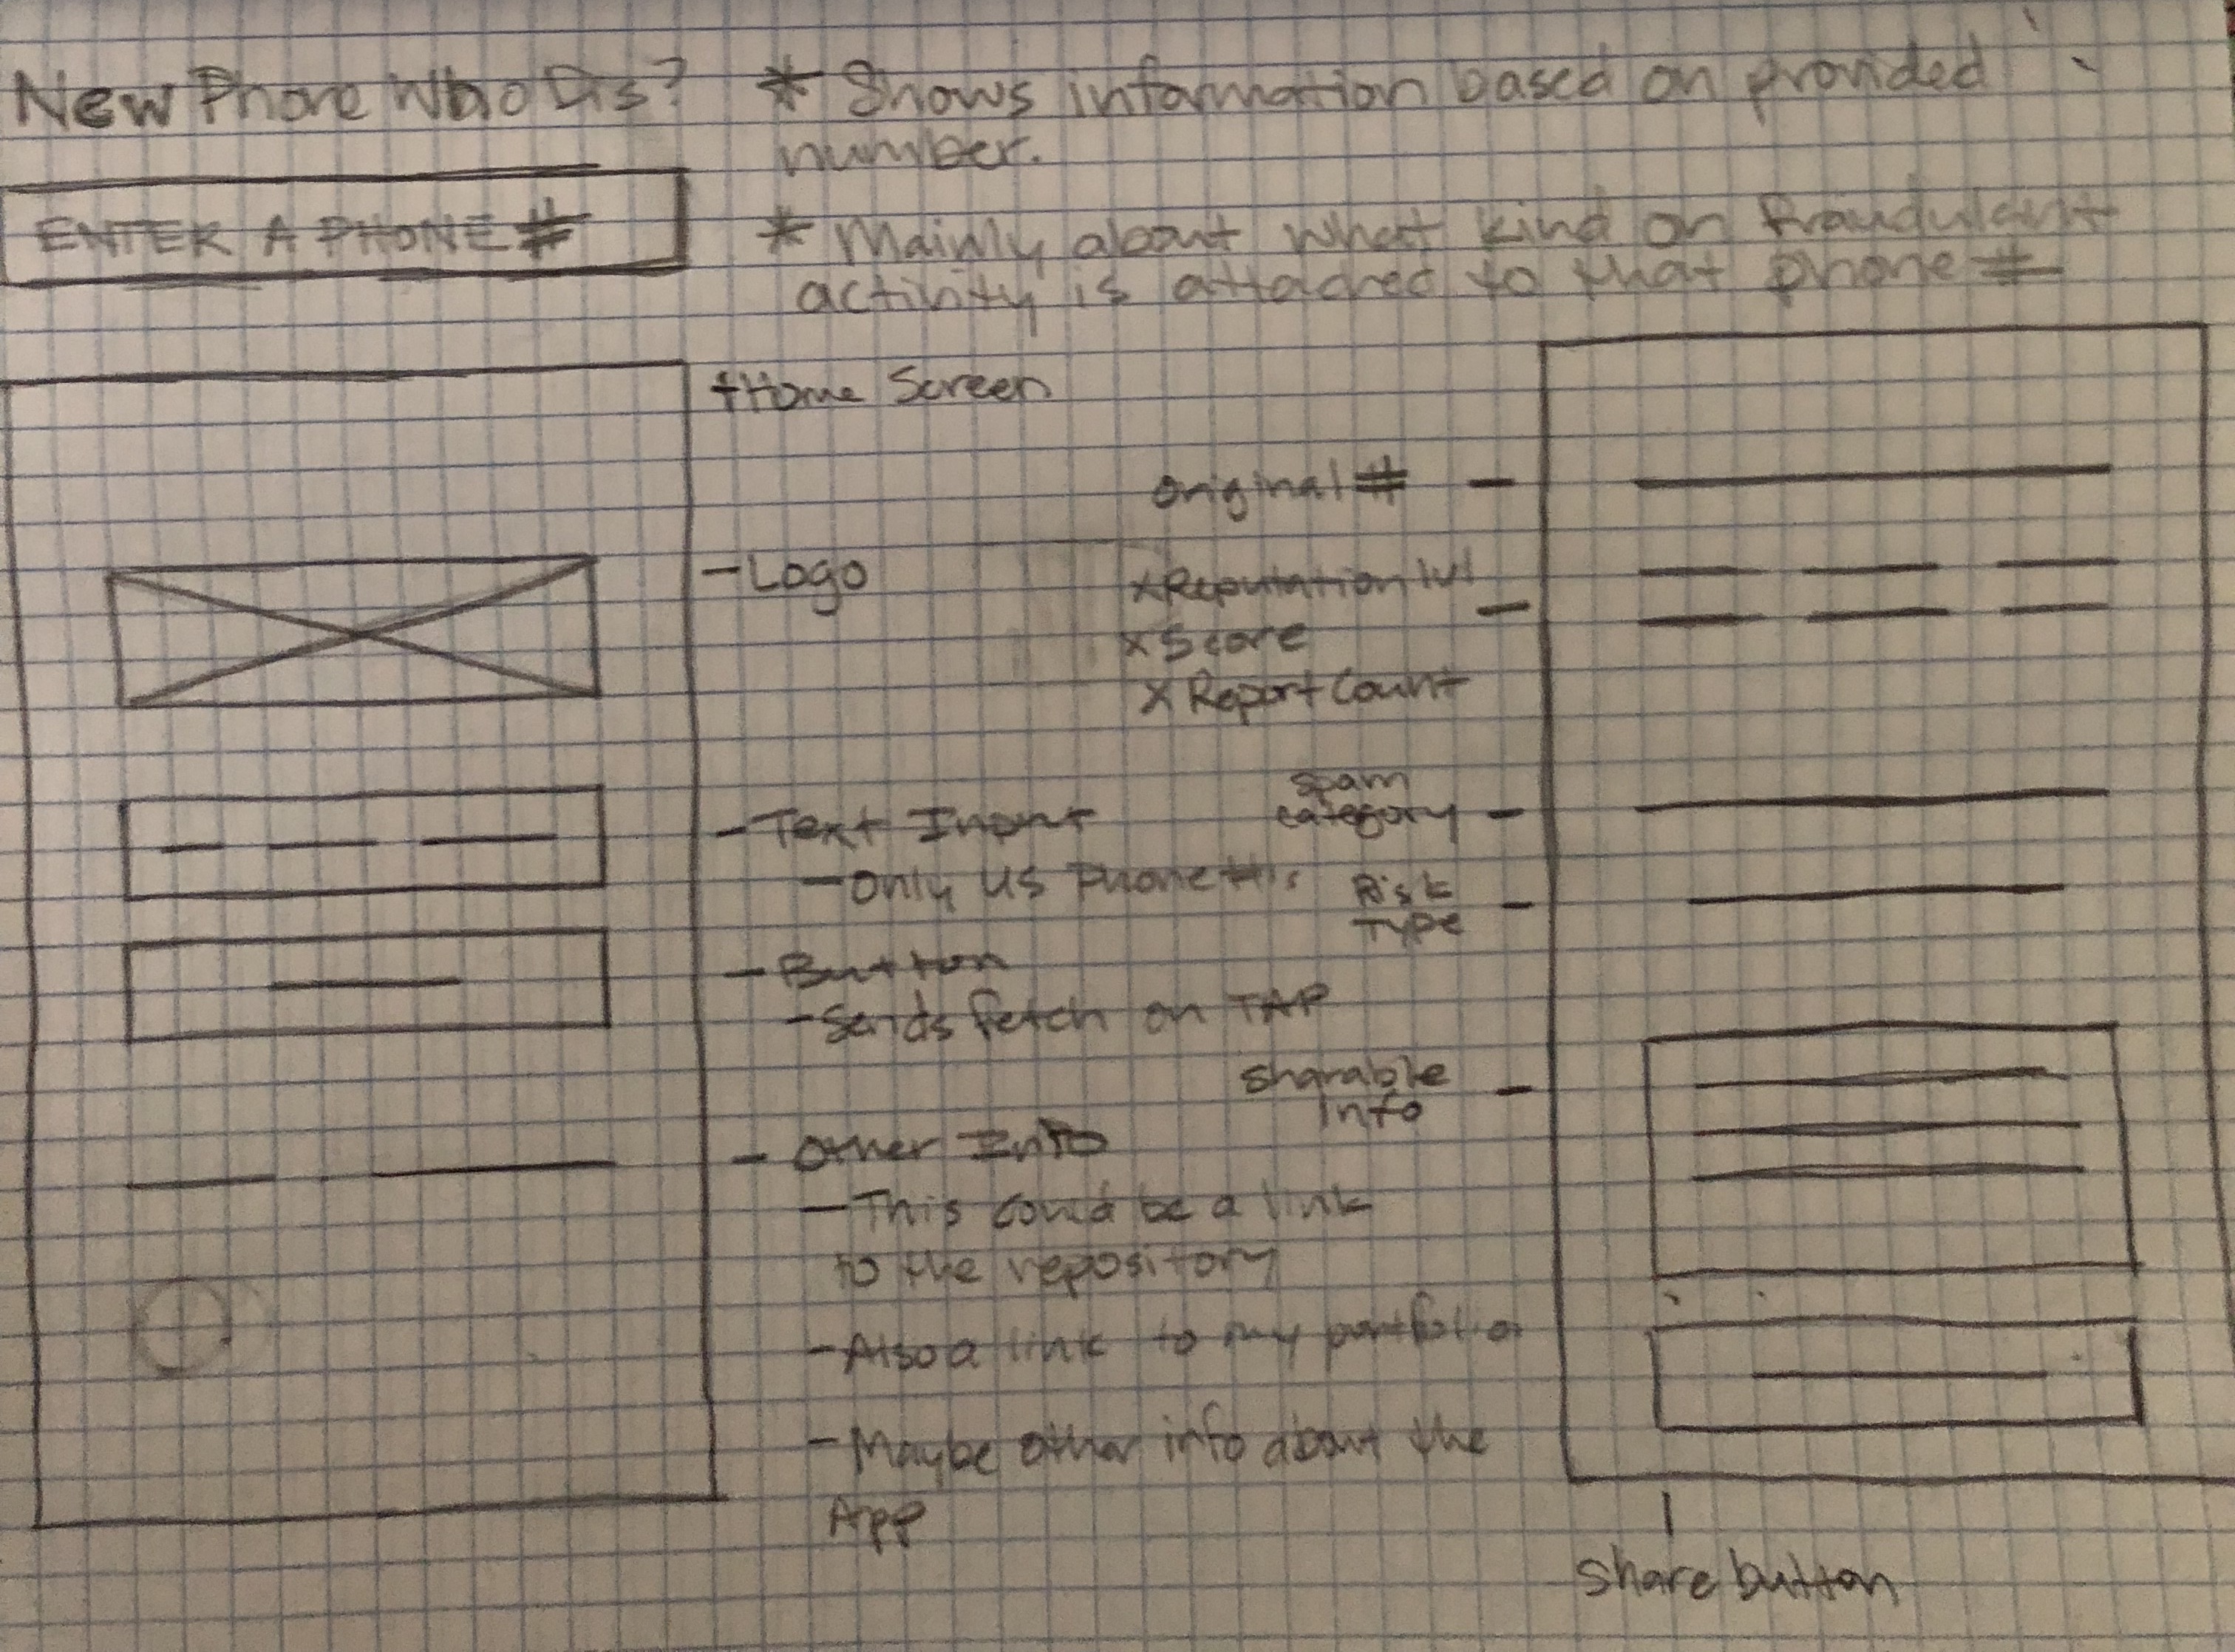 New Phone Who Dis?
ENTER A PHONE #
* Shows information based on provided
number.
* Mainly about what kind on fraudulent
activity is attached to that phone #
+Home Screen
- Logo
- Text Input
- Only US Phone #'s
- Button
- Sends fetch on TAP
- Other Info
- This could be a link
to the repository
- Also a link to my portfolio
- Maybe other info about the
App
Original # -
x Reputation lvl -
x Score
x Report Count
Spam
category -
Risk
Type -
Sharable
info -
Share button